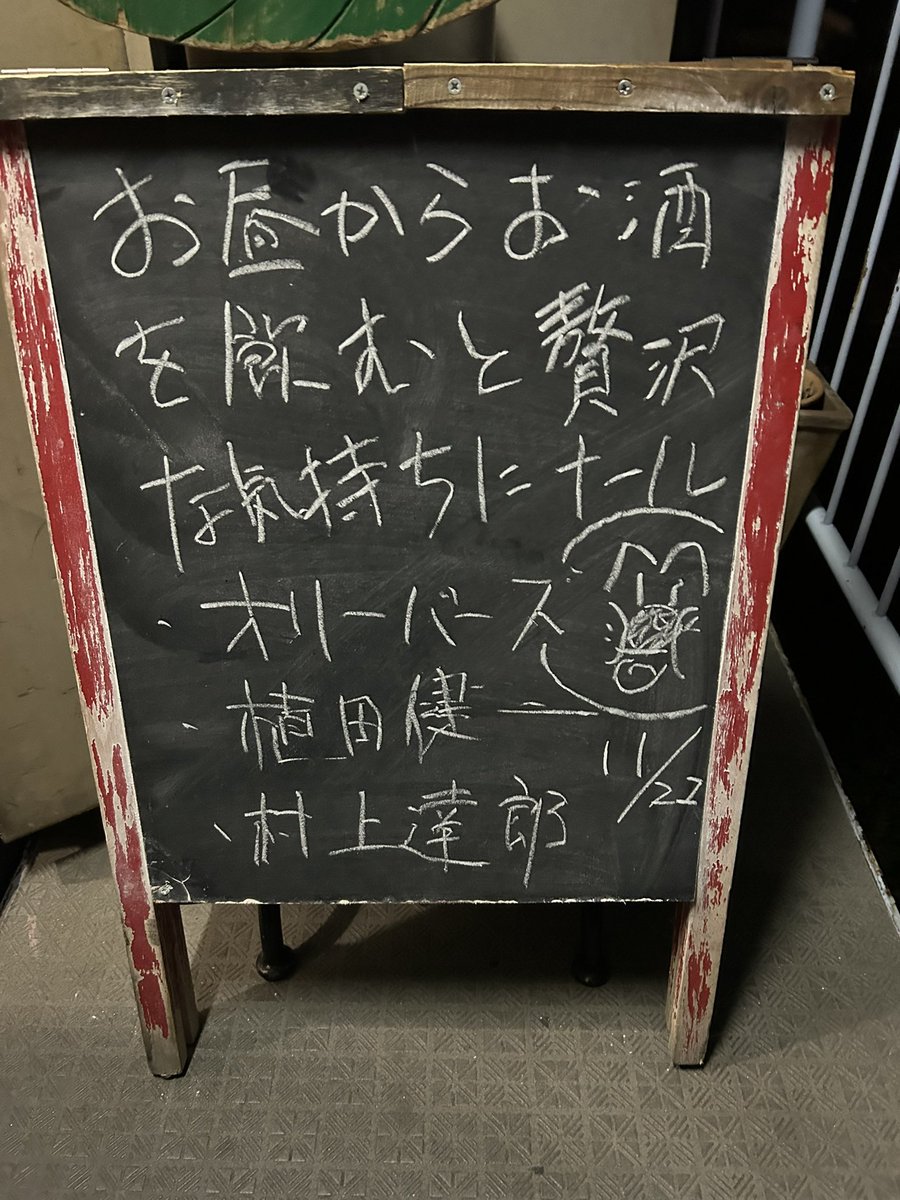 お昼からお酒
を飲むと贅沢
な気持ちにナール
・オリーバーズ
・植田健一
・村上達郎
11/22